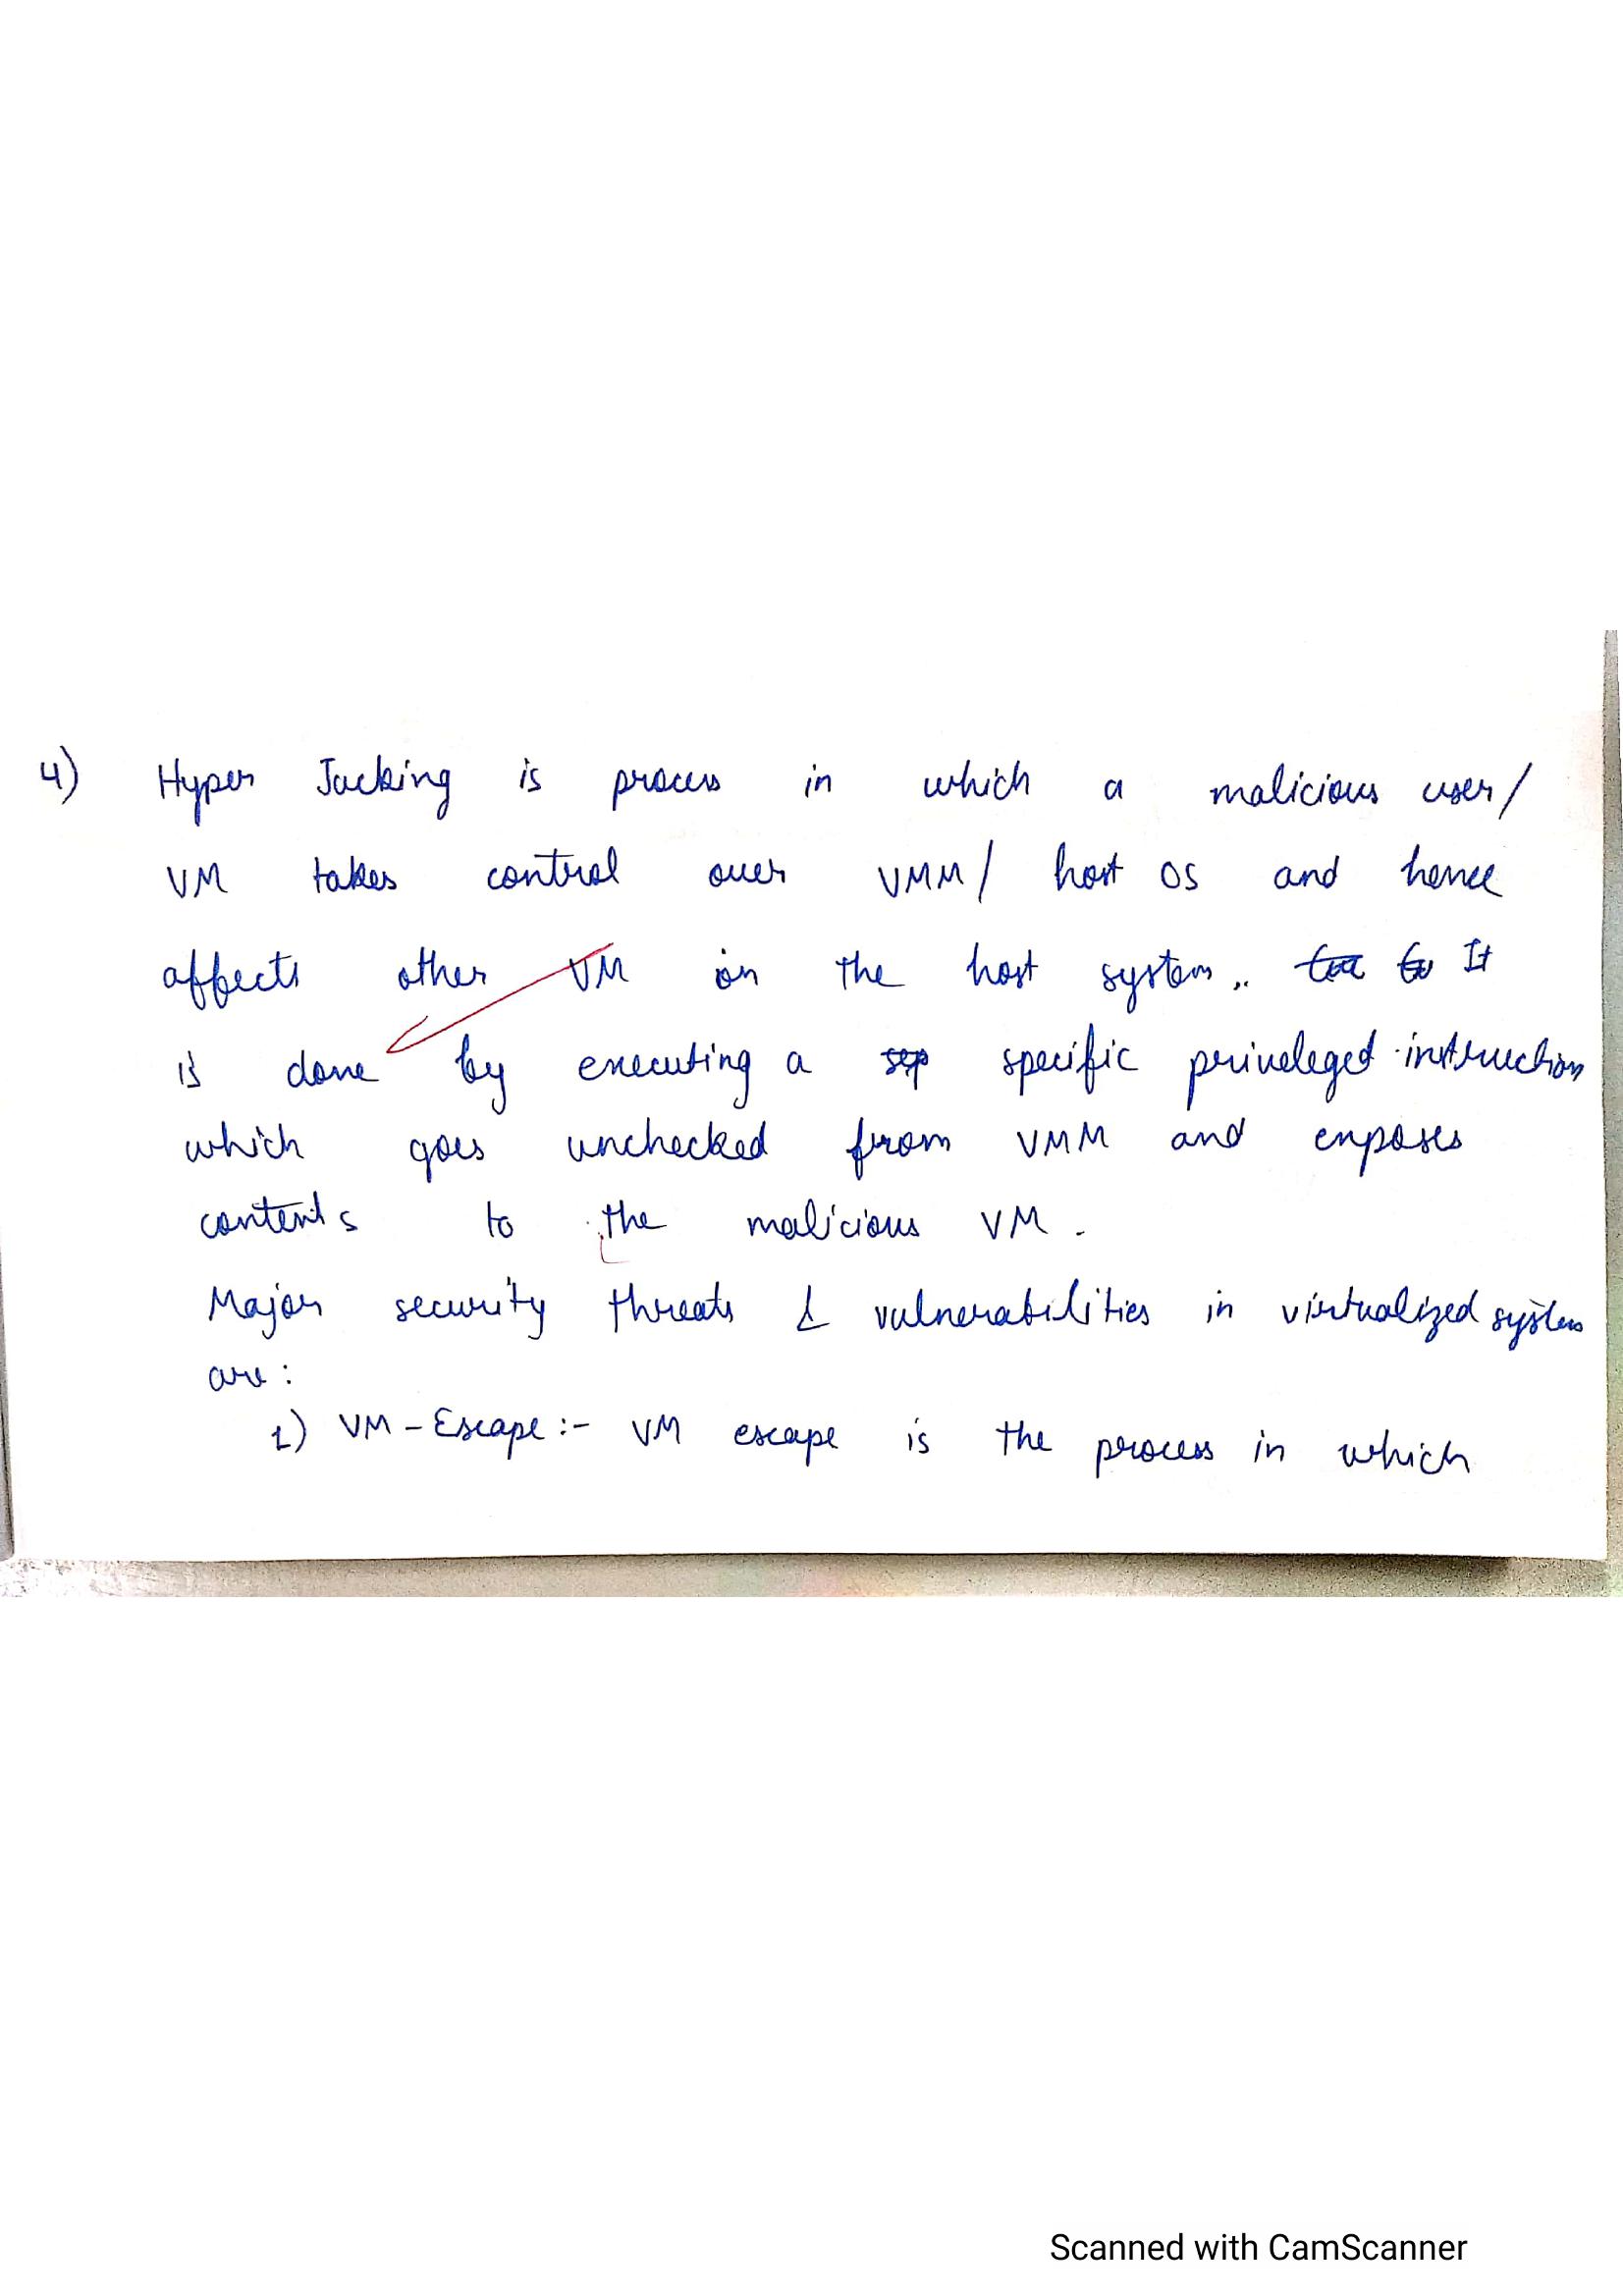 4) Hyper Jacking is process in which a malicious user/
VM takes control over VMM/ host OS and hence
affects other VM on the host system.. It
is done by executing a specific priveleged instruction
which goes unchecked from VMM and exposes
contents to the malicious VM.
Major security threats & vulnerabilities in virtualized system
are:
1) VM-Escape:- VM escape is the process in which
Scanned with CamScanner